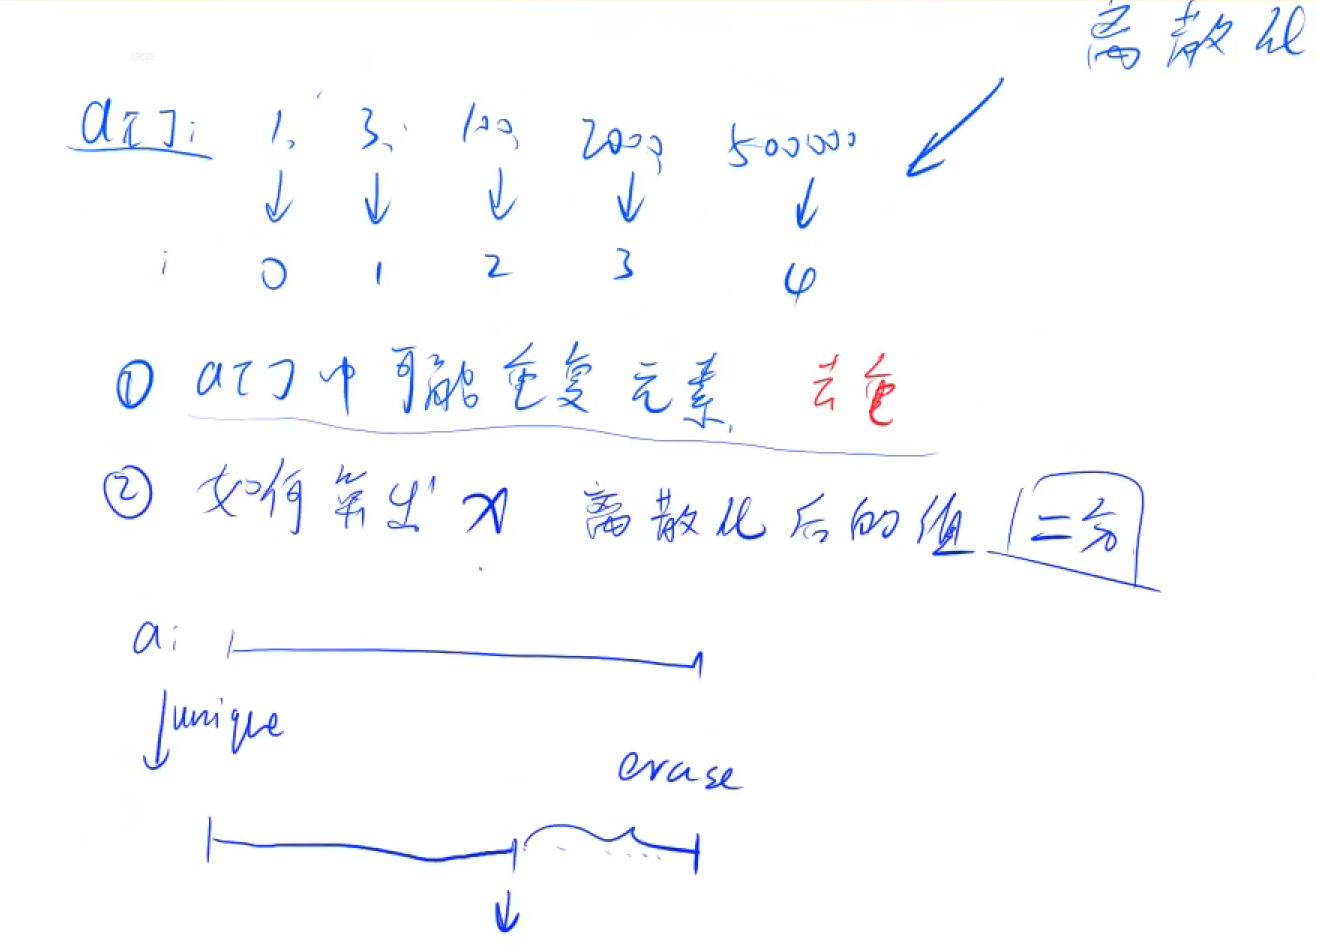 离散化
a[]: 1, 3, 100, 2000, 500000
i 0 1 2 3 4
① a[]中可能重复元素, 去重
② 如何算出x 离散化后的值 二分
a:
unique
erase